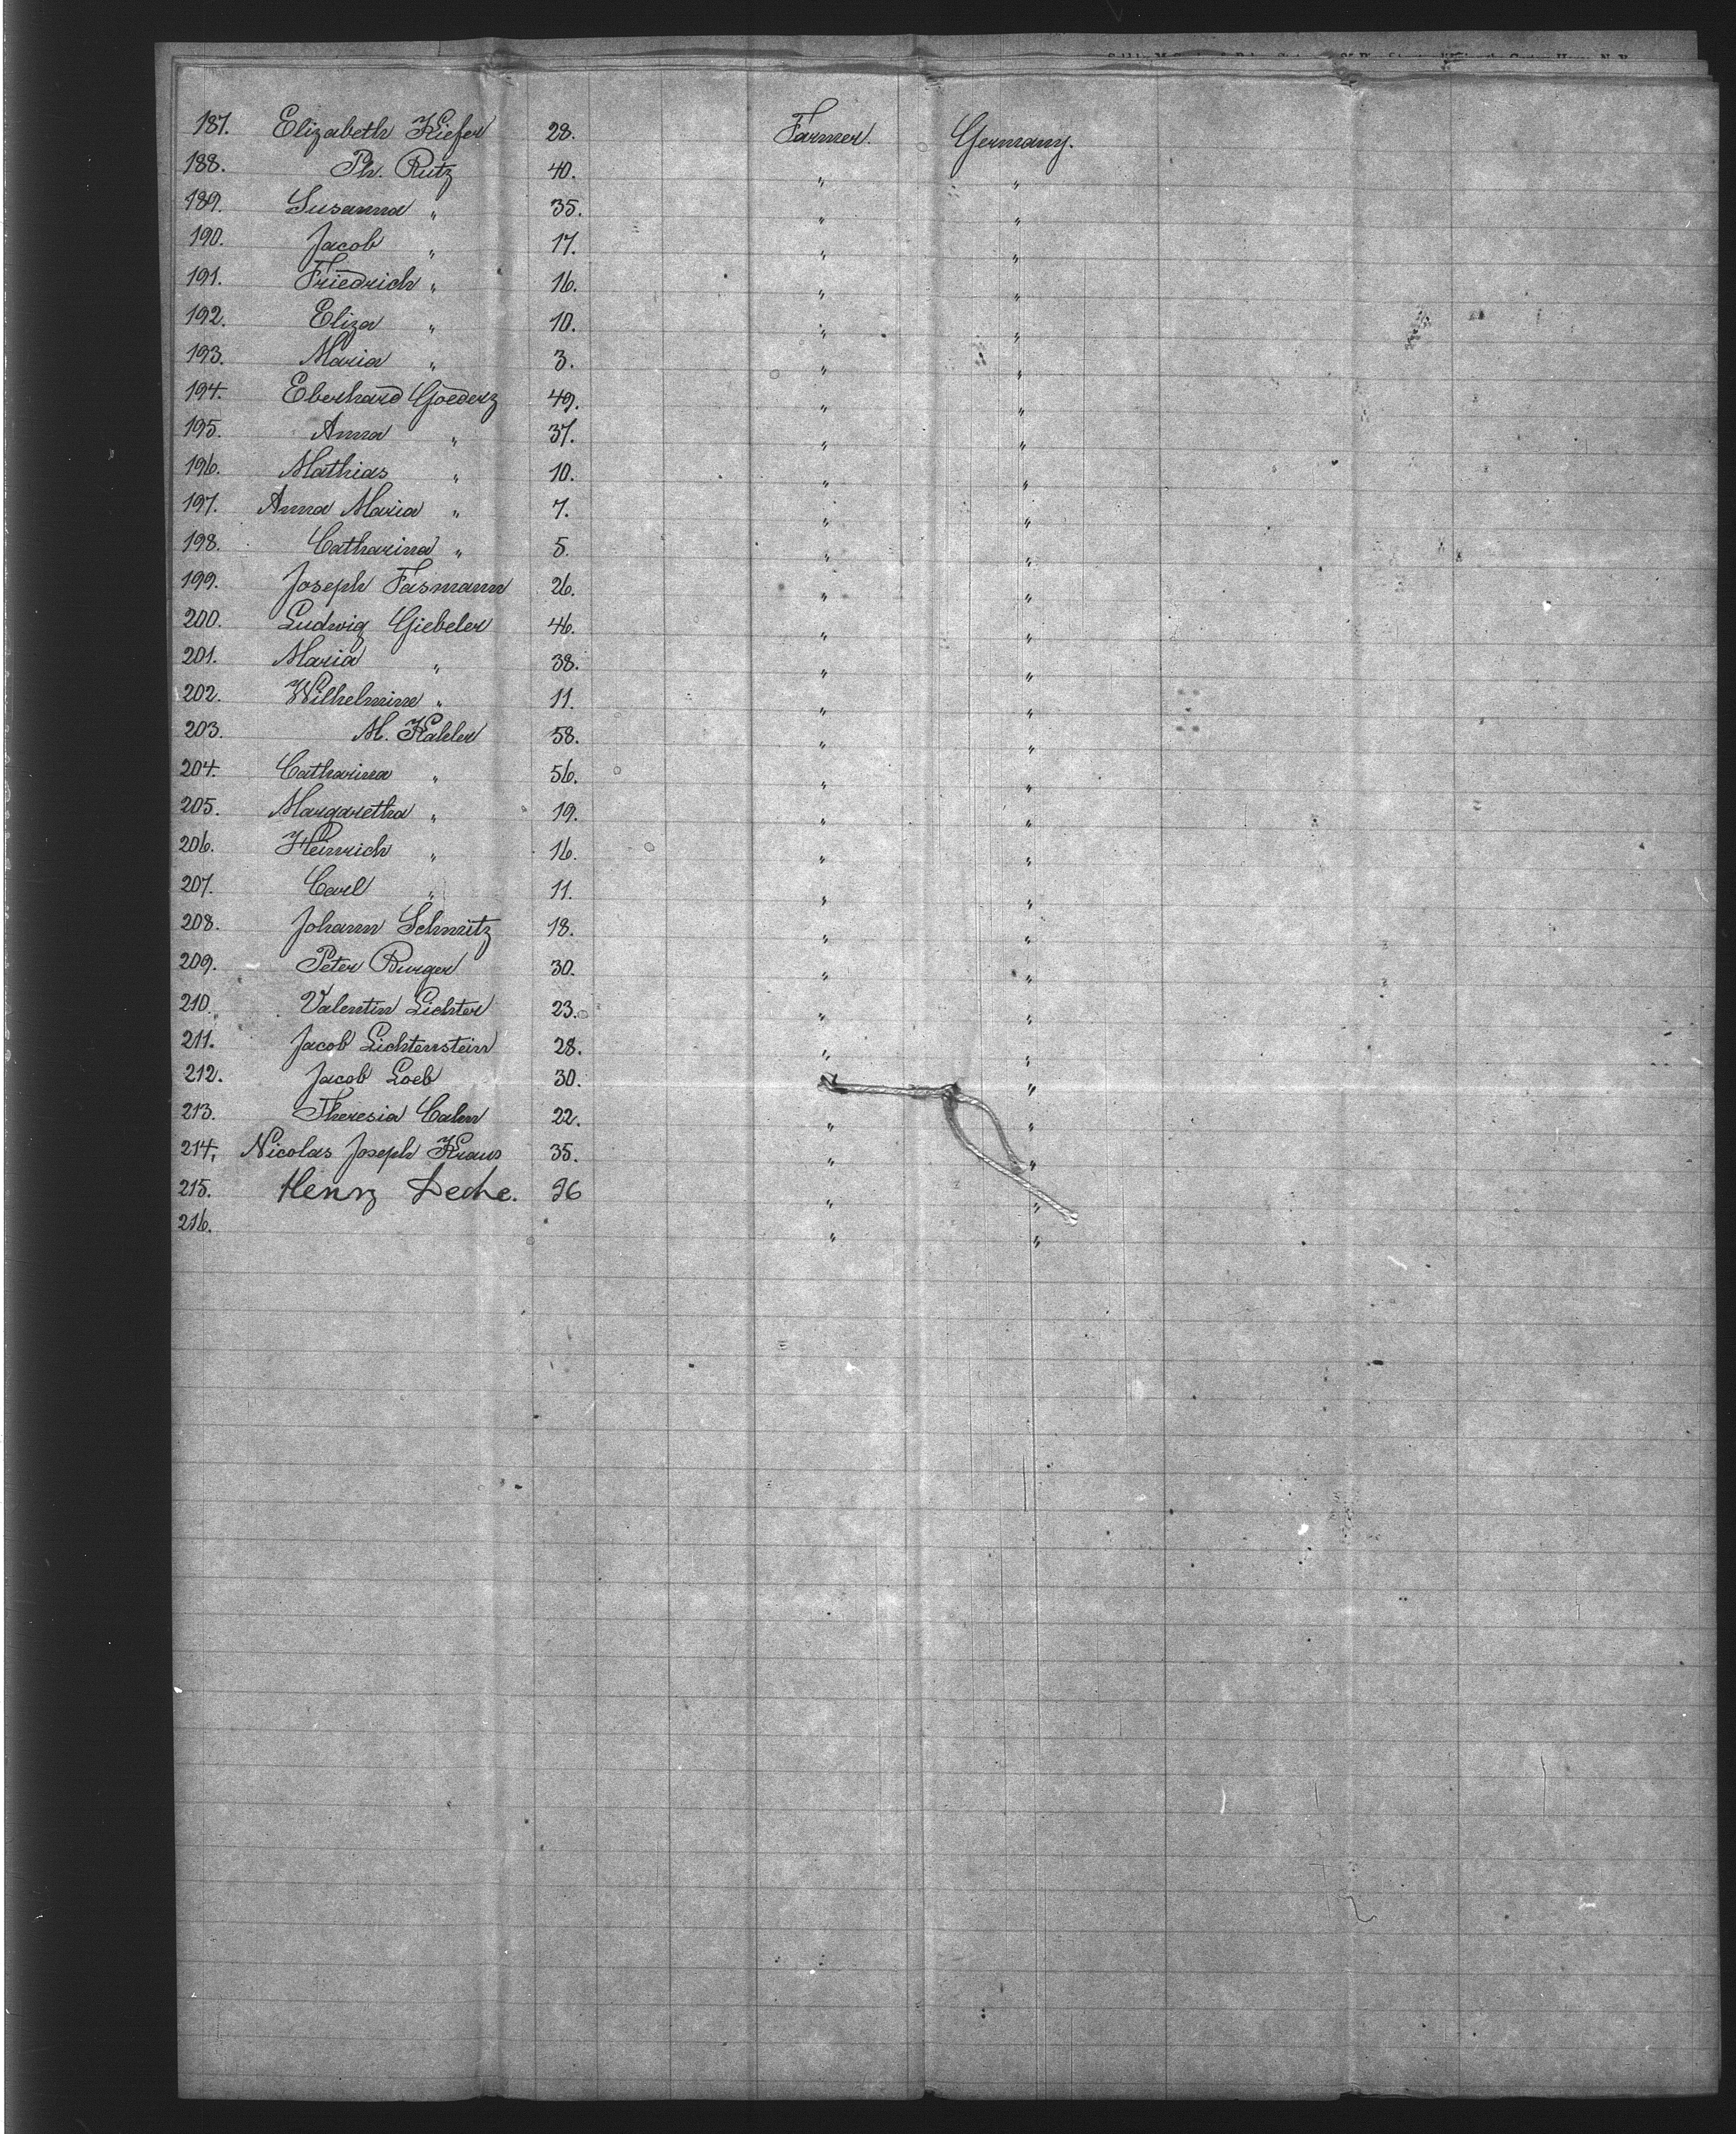 187. Elizabeth Kiefer 28. Farmer. Germany.
188. Ph. Rutz 40. " "
189. Susanna " 35. " "
190. Jacob " 17. " "
191. Friedrich " 16. " "
192. Eliza " 10. " "
193. Maria " 3. " "
194. Eberhard Goederz 49. " "
195. Anna " 37. " "
196. Mathias " 10. " "
197. Anna Maria " 7. " "
198. Catharina " 5. " "
199. Joseph Fasmann 26. " "
200. Ludwig Giebeler 46. " "
201. Maria " 38. " "
202. Wilhelmine " 11. " "
203. M. Kahler 58. " "
204. Catharina " 56. " "
205. Margaretha " 19. " "
206. Heinrich " 16. " "
207. Carl " 11. " "
208. Johann Schmitz 18. " "
209. Peter Burger 30. " "
210. Valentin Lichter 23. " "
211. Jacob Lichtenstein 28. " "
212. Jacob Loeb 30. "
213. Theresia Cahn 22. " "
214. Nicolas Joseph Kraus 35. " "
215. Henry 26 " "
216. " "